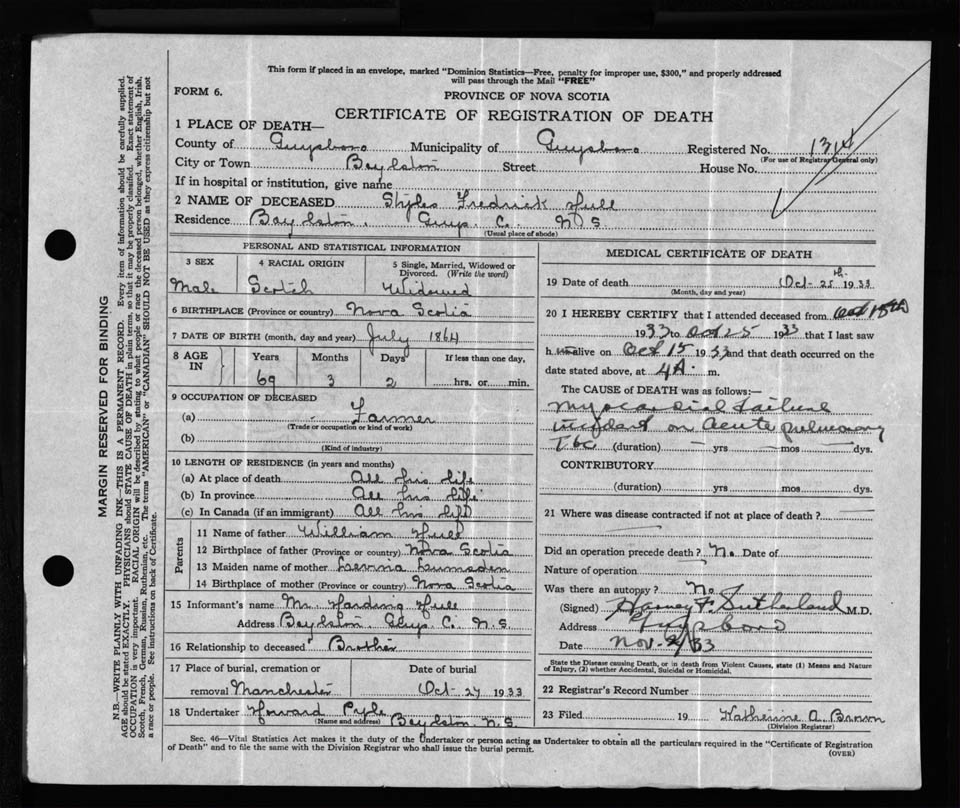 This form if placed in an envelope, marked "Dominion Statistics—Free, penalty for improper use, $300," and properly addressed
will pass through the Mail "FREE"
FORM 6.
PROVINCE OF NOVA SCOTIA
CERTIFICATE OF REGISTRATION OF DEATH
1 PLACE OF DEATH—
County of Guysboro Municipality of Guysboro Registered No. 1314
(For use of Registrar General only)
City or Town Boylston Street House No.
If in hospital or institution, give name
2 NAME OF DECEASED Styles Fredrick Hull
Residence Boylston, Guys. C. N S
(Usual place of abode)
PERSONAL AND STATISTICAL INFORMATION
3 SEX 4 RACIAL ORIGIN 5 Single, Married, Widowed or
Divorced. (Write the word)
Male Scotch Widowed
6 BIRTHPLACE (Province or country) Nova Scotia
7 DATE OF BIRTH (month, day and year) July 1864
8 AGE IN Years Months Days If less than one day,
69 3 2 hrs. or min.
9 OCCUPATION OF DECEASED
(a) Farmer
(Trade or occupation or kind of work)
(b)
(Kind of industry)
10 LENGTH OF RESIDENCE (in years and months)
(a) At place of death All his life
(b) In province All his life
(c) In Canada (if an immigrant) All his life
Parents
11 Name of father William Hull
12 Birthplace of father (Province or country) Nova Scotia
13 Maiden name of mother Lumsden
14 Birthplace of mother (Province or country) Nova Scotia
15 Informant's name Mr. Harding Hull
Address Boylston, Guys C. N.S
16 Relationship to deceased Brother
17 Place of burial, cremation or Date of burial
removal Manchester Oct- 27 1933
18 Undertaker Howard Pyle
(Name and address) Boylston N.S.
MEDICAL CERTIFICATE OF DEATH
19 Date of death Oct- 25th 1933
(Month, day and year)
20 I HEREBY CERTIFY that I attended deceased from Oct 15th
1933 to Oct 25 1933 that I last saw
him alive on Oct 15 1933 and that death occurred on
date stated above, at 4 A. m.
The CAUSE of DEATH was as follows:—
Myocardial Failure
on Acute pulmonary
Tbc (duration) — yrs — mos — dys.
CONTRIBUTORY
(duration) yrs mos dys.
21 Where was disease contracted if not at place of death?
Did an operation precede death? No Date of
Nature of operation
Was there an autopsy? No
(Signed) Harvey F. Sutherland M.D.
Address Guysboro
Date Nov-2/33
State the Disease causing Death, or in death from Violent Causes, state (1) Means and Nature
of Injury, (2) whether Accidental, Suicidal or Homicidal.
22 Registrar's Record Number
23 Filed 19 Katherine A. Brown
(Division Registrar)
Sec. 46—Vital Statistics Act makes it the duty of the Undertaker or person acting as Undertaker to obtain all the particulars required in the "Certificate of Registration
of Death" and to file the same with the Division Registrar who shall issue the burial permit.
(OVER)
MARGIN RESERVED FOR BINDING
N.B.—WRITE PLAINLY WITH UNFADING INK—THIS IS A PERMANENT RECORD. Every item of information should be carefully supplied.
AGE should be stated EXACTLY. PHYSICIANS should STATE CAUSE OF DEATH in plain terms, so that it may be properly classified. Exact statement of
OCCUPATION is very important. RACIAL ORIGIN will be described by stating to what people or race the deceased person belonged, whether English, Irish,
Scotch, French, German, Russian, Ruthenian, etc. The terms "AMERICAN" or "CANADIAN" SHOULD NOT BE USED as they express citizenship but not
a race or people. See instructions on back of Certificate.